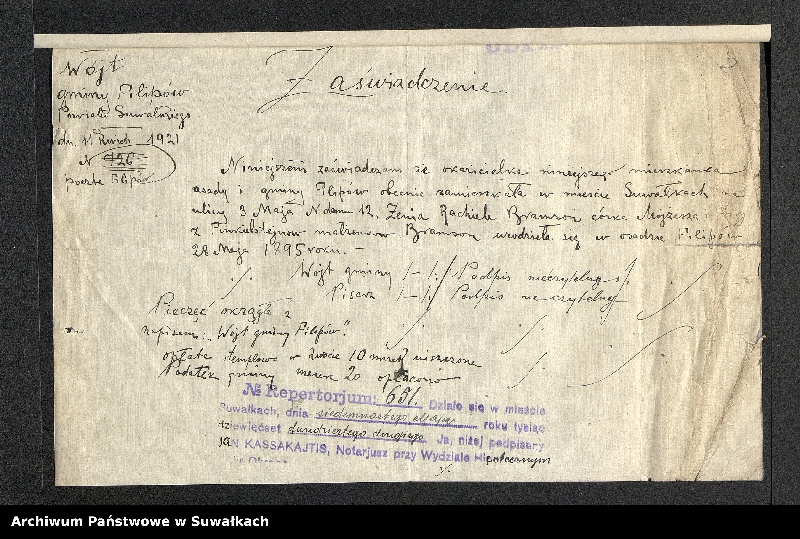 Wójt
gminy Filipów
Powiatu Suwalskiego
dn. 11 1921
N 426
poczta Filipów
Zaświadczenie
Niniejszem zaświadczam że okazicielka niniejszego mieszkanka
osady i gminy Filipów obecnie zamieszkała w mieście Suwałkach na
ulicy 3 Maja N domu 12, Zenia Rachiela Bramson córka Mojżesza i
z małżonków Bramson urodziła się w osadzie Filipów
28 Maja 1895 roku. –
Wójt gminy /–/ /Podpis nieczytelny/
Pisarz /–/ /Podpis nieczytelny/
Pieczęć okrągła z
napisem: „Wójt gminy Filipów".
opłata stemplowa w kwocie 10 marek uiszczone
Podatek gminny marek 20 opłacono
№ Repertorjum: 651. Działo się w mieście
Suwałkach, dnia siedemnastego Maja roku tysiąc
dziewięćset dwudziestego drugiego Ja, niżej podpisany
JAN KASSAKAJTIS, Notarjusz przy Wydziale Hipotecznym
Archiwum Państwowe w Suwałkach